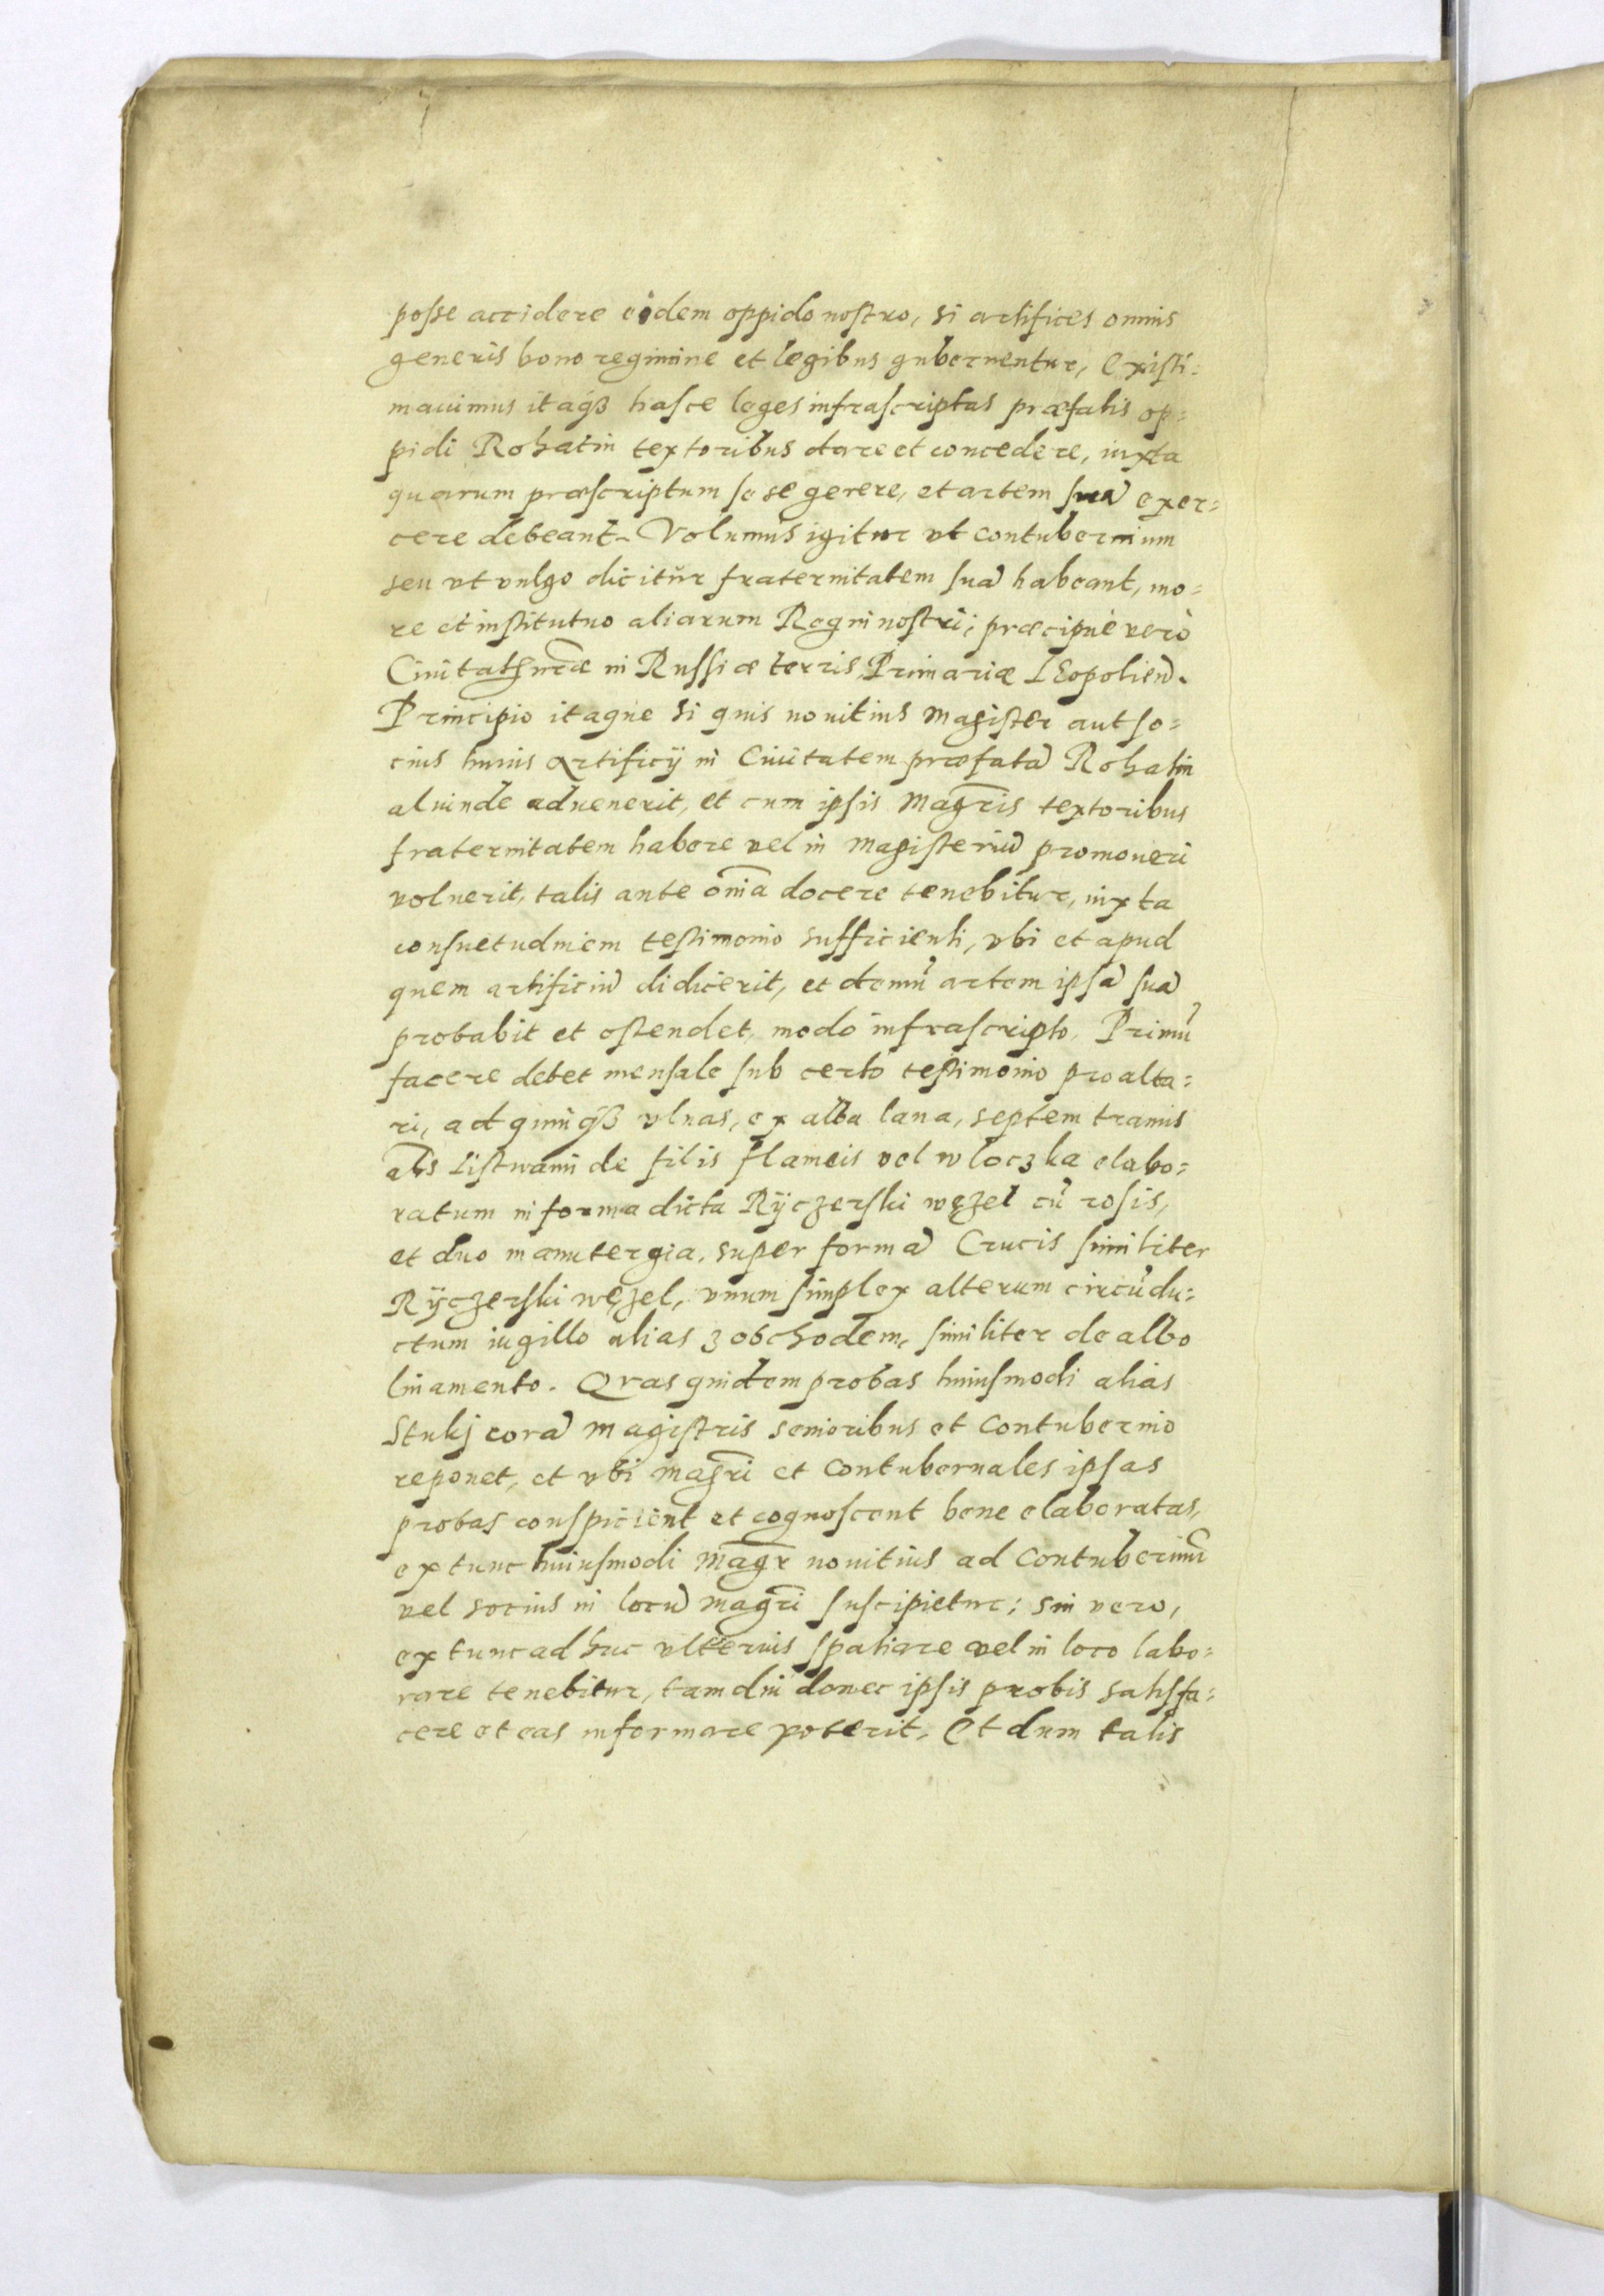 posse accidere eidem oppido nostro, si artifices omnis
generis bono regimine et legibus gubernentur, Existi=
mauimus itaqȝ hasce leges infrascriptas præfatis op=
pidi Rohatin textoribus dare et concedere, iuxta
quarum præscriptum se se gerere, et artem suā exer=
cere debeant. Volumus igitur vt contubernium
seu vt vulgo dicitur fraternitatem suā habeant, mo=
re et institutuo aliarum Regni nostri; præcipuè verò
Ciuitat nræ in Russiæ terris, Primariæ LEopolien̄.
Principio itaque si quis nouitius Magister aut so=
cius huius Artificij in Ciuitatem præfatā Rohatin
aliunde aduenerit, et cum ipsis Magr̄is textoribus
fraternitatem habere vel in Magisteriū promoueri
voluerit, talis ante om̄ia docere tenebitur, iuxta
consuetudinem testimonio sufficienti, vbi et apud
quem artificiū didicerit, et demū artem ipsā suā
probabit et ostendet, modo infrascripto. Primū
facere debet mensale sub certo testimonio pro alta=
ri, ad quinqȝ vlnas, ex alba lana, septem tramis
al̄s Listwami de filis flameis vel wloczka elabo=
ratum in forma dicta Rÿczerski węzel cū rosis,
et duo manutergia, super formā Crucis similiter
Rÿczerski węzel, vnum simplex alterum circūdu=
ctum iugillo alias z obchodem, similiter de albo
linamento. Qvas quidem probas huiusmodi alias
Stukj corā Magistris senioribus et Contubernio
reponet, et vbi Magr̄i et Contubernales ipsas
probas conspicient et cognoscent bene elaboratas,
ex tunc huiusmodi Magr̄ nouitius ad Contuberniū
vel socius in locū Magr̄i suscipietur; sin vero,
ex tunc ad huc vlterius spatiare vel in loco labo=
rare tenebitur, tam diu donec ipsis probis satisfa=
cere et eas informare poterit, Et dum talis